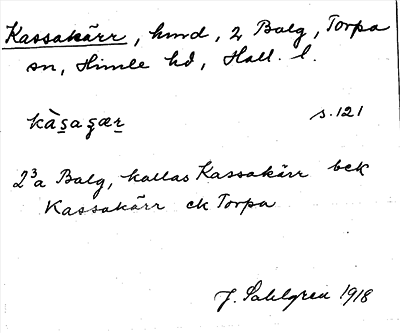 Kassakärr, hmd, 2 Balg, Torpa
sn, Himle hd, Hall. l.
s. 121
2³a Balg, kallas Kassakärr bek
Kassakärr ek Torpa
J. Sahlgren 1918